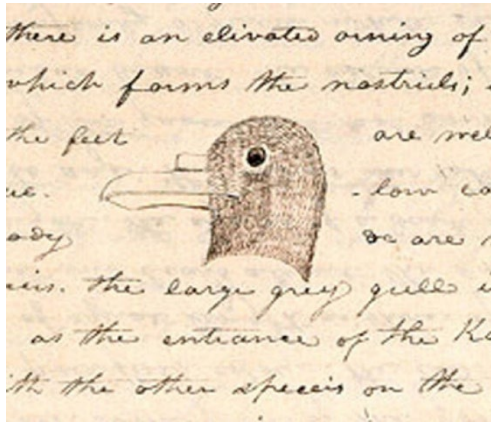 there is an elivated orning of
which forms the nostrils;
the feet are wel
low co
ody are
the large grey gull
as the entrance of the Ko
ith the other specis on the